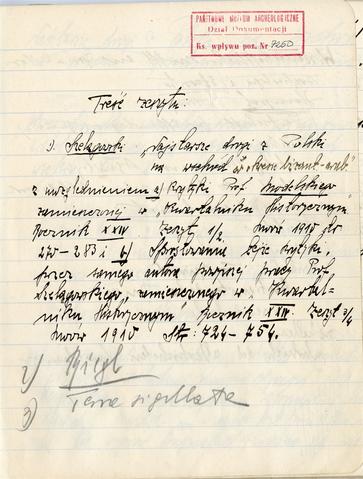 PAŃSTWOWE MUZEUM ARCHEOLOGICZNE
Dział Dokumentacji
Ks. wpływu poz. Nr 7250
Treść zeszytu:
1) Szelągowski „Najstarsze drogi z Polski
na wschód w okresie bizant.-arab."
z uwzględnieniem a) Krytyki Prof. Modelskiego
zamieszczonej w „Kwartalniku Historycznym"
Rocznik XXIV Zeszyt 1/2 Lwów 1910 str
275-283 i b) Sprostowania tejże krytyki,
przez samego autora powyższej pracy Prof.
Szelągowskiego, zamieszczonego w „Kwartal-
niku Historycznym" Rocznik XXIV: Zeszyt 3/4
Lwów 1910 Str: 724-754.
2) Riegl
3) Terra sigillata